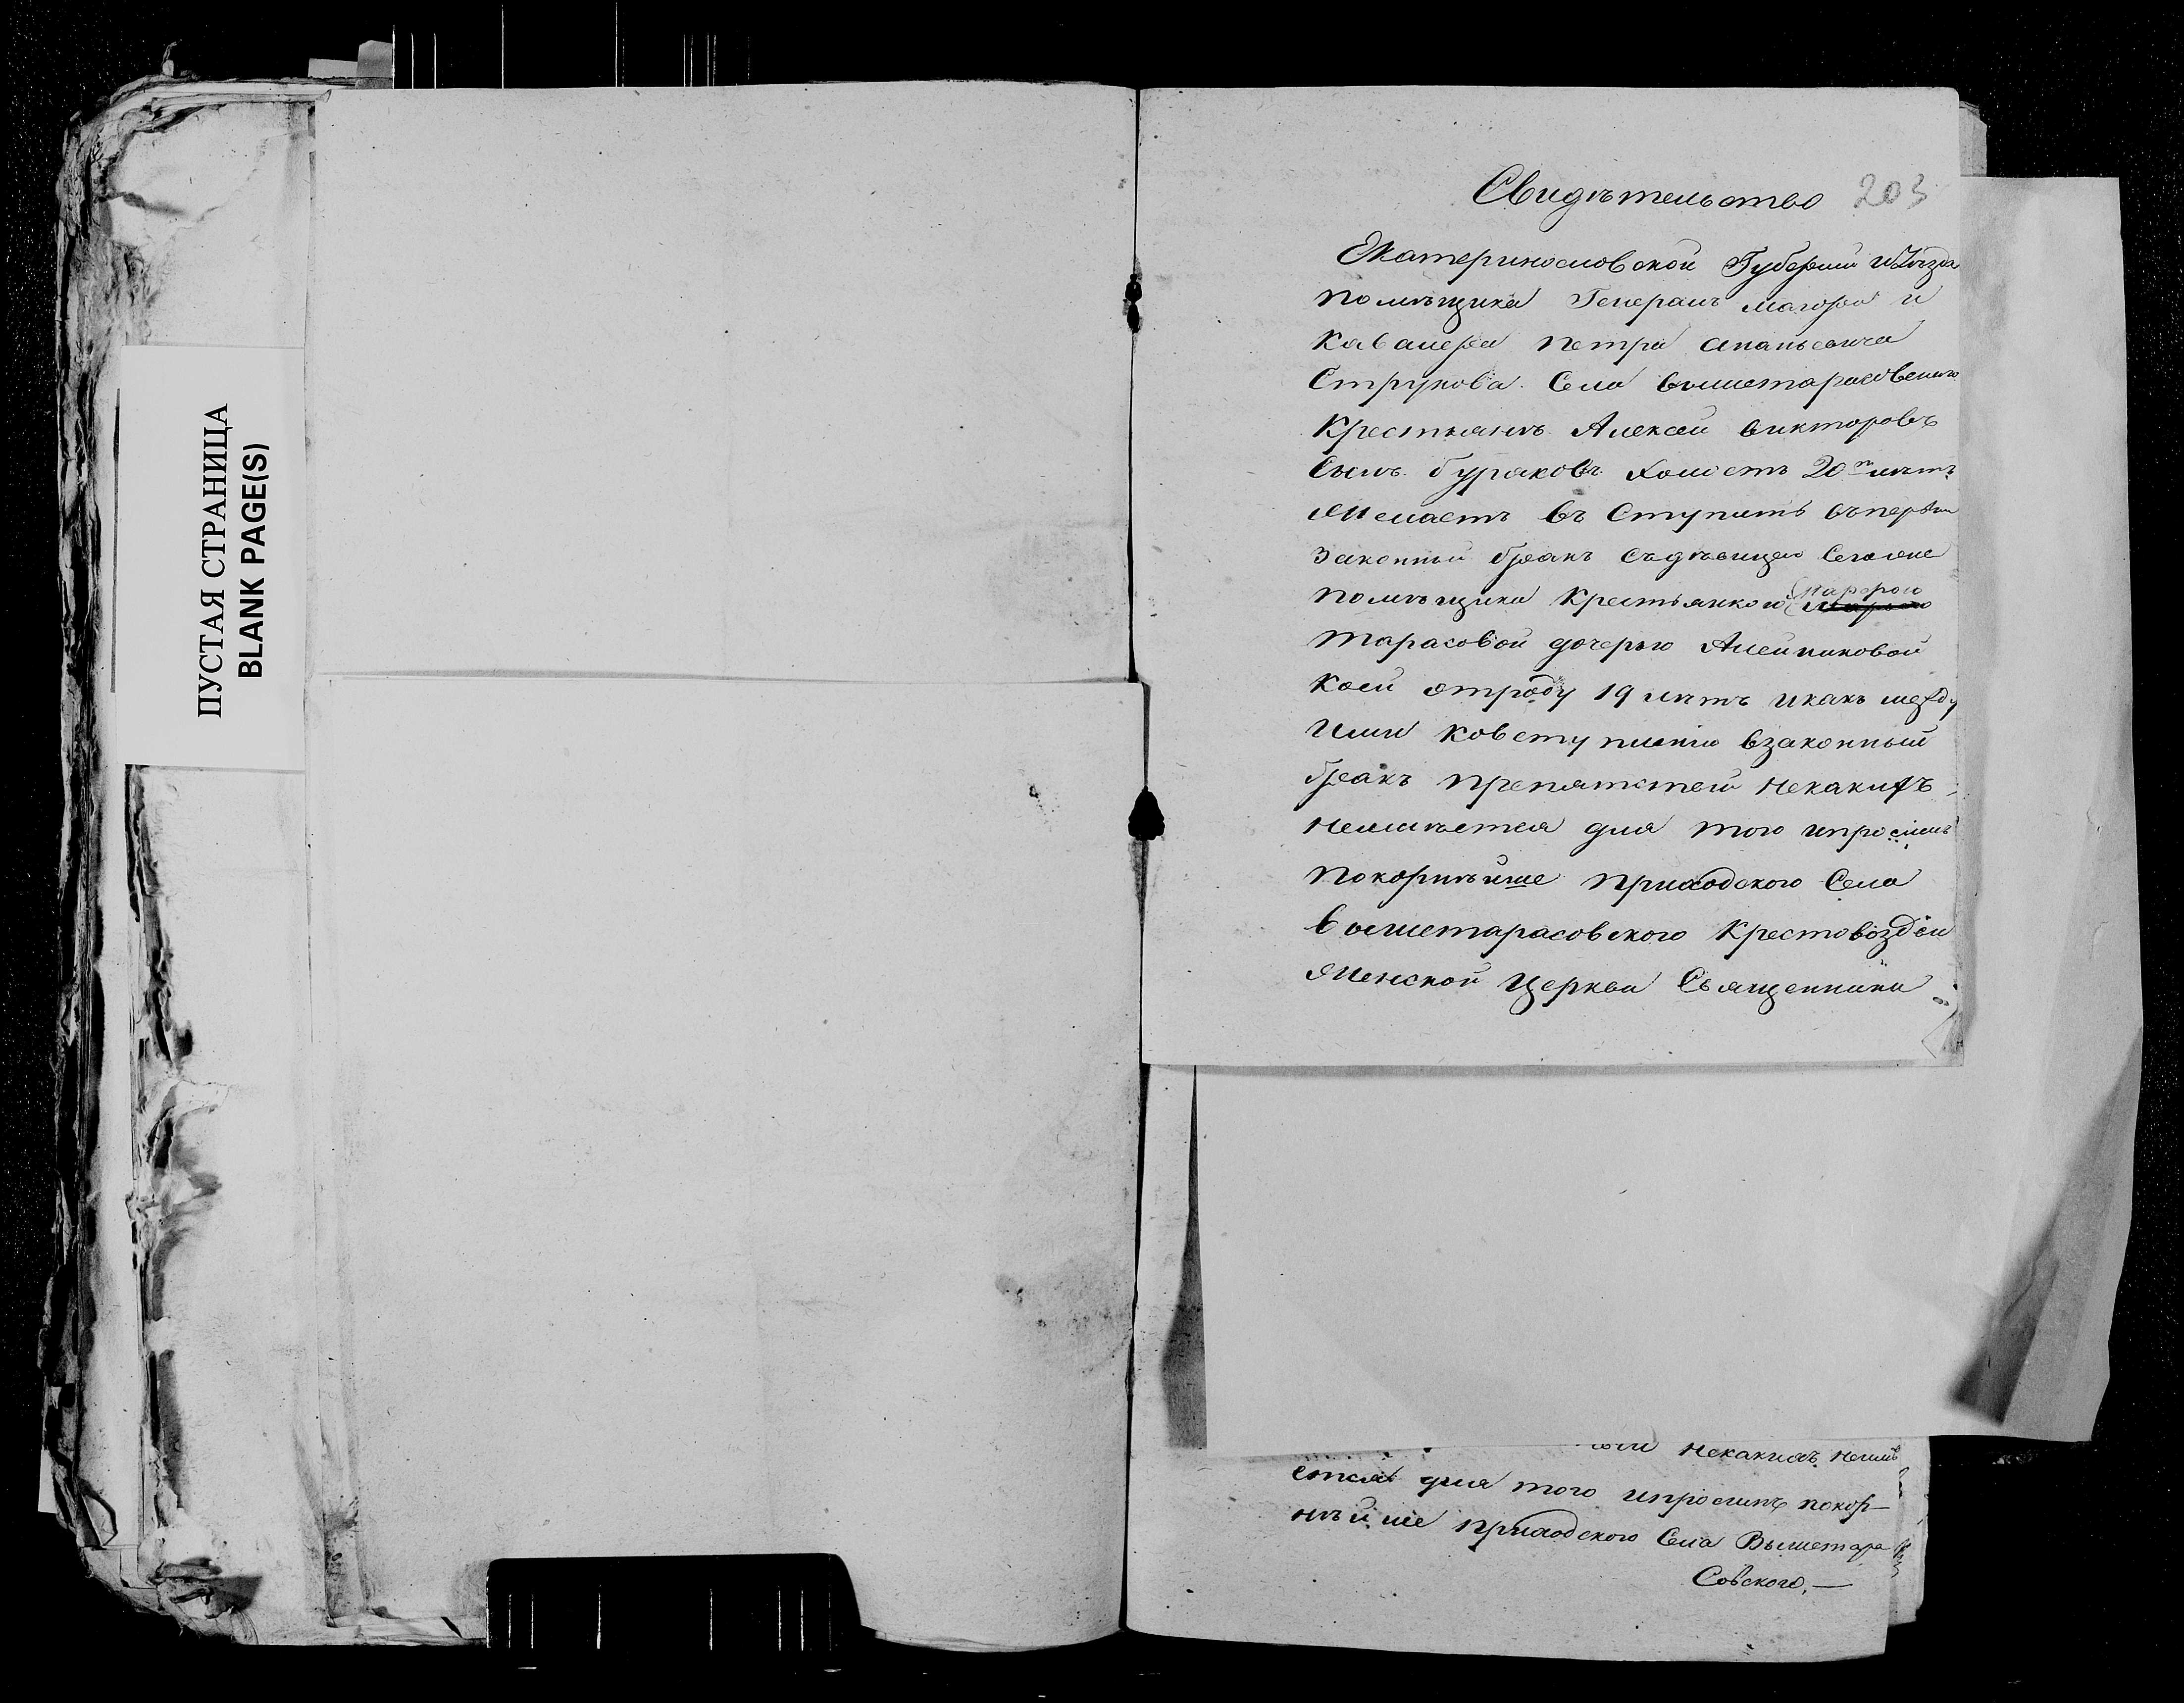 ПУСТАЯ СТРАНИЦА
BLANK PAGE(S)
Свидѣтельство 203
Екатеринославской Губернии иУѣзда
помѣщика Генералъ маиора и
Кавалера петра ананьевича
Струкова Села вышетарасовского
Крестьянинъ Алексеи викторовъ
Сынъ бураковъ холостъ 20ти лѣтъ
желаетъ въ Ступить въпервый
законный бракъ съдѣвицею Сегоже
помѣщика крестьянкою марфою
тарасовой дочерью Алейниковой
коей отроду 19 лѣтъ икакъ между
ими ковступлению взаконный
бракъ препятстеи некакихъ
неимѣетса для того ипросимъ
покорнѣйше приходского Села
вышетарасовского Крестовоздви
женской церкви Священника
некакихъ неимѣ
етса для того ипросимъ покор—
нѣйше приходского Села Вышетара
Совского,—